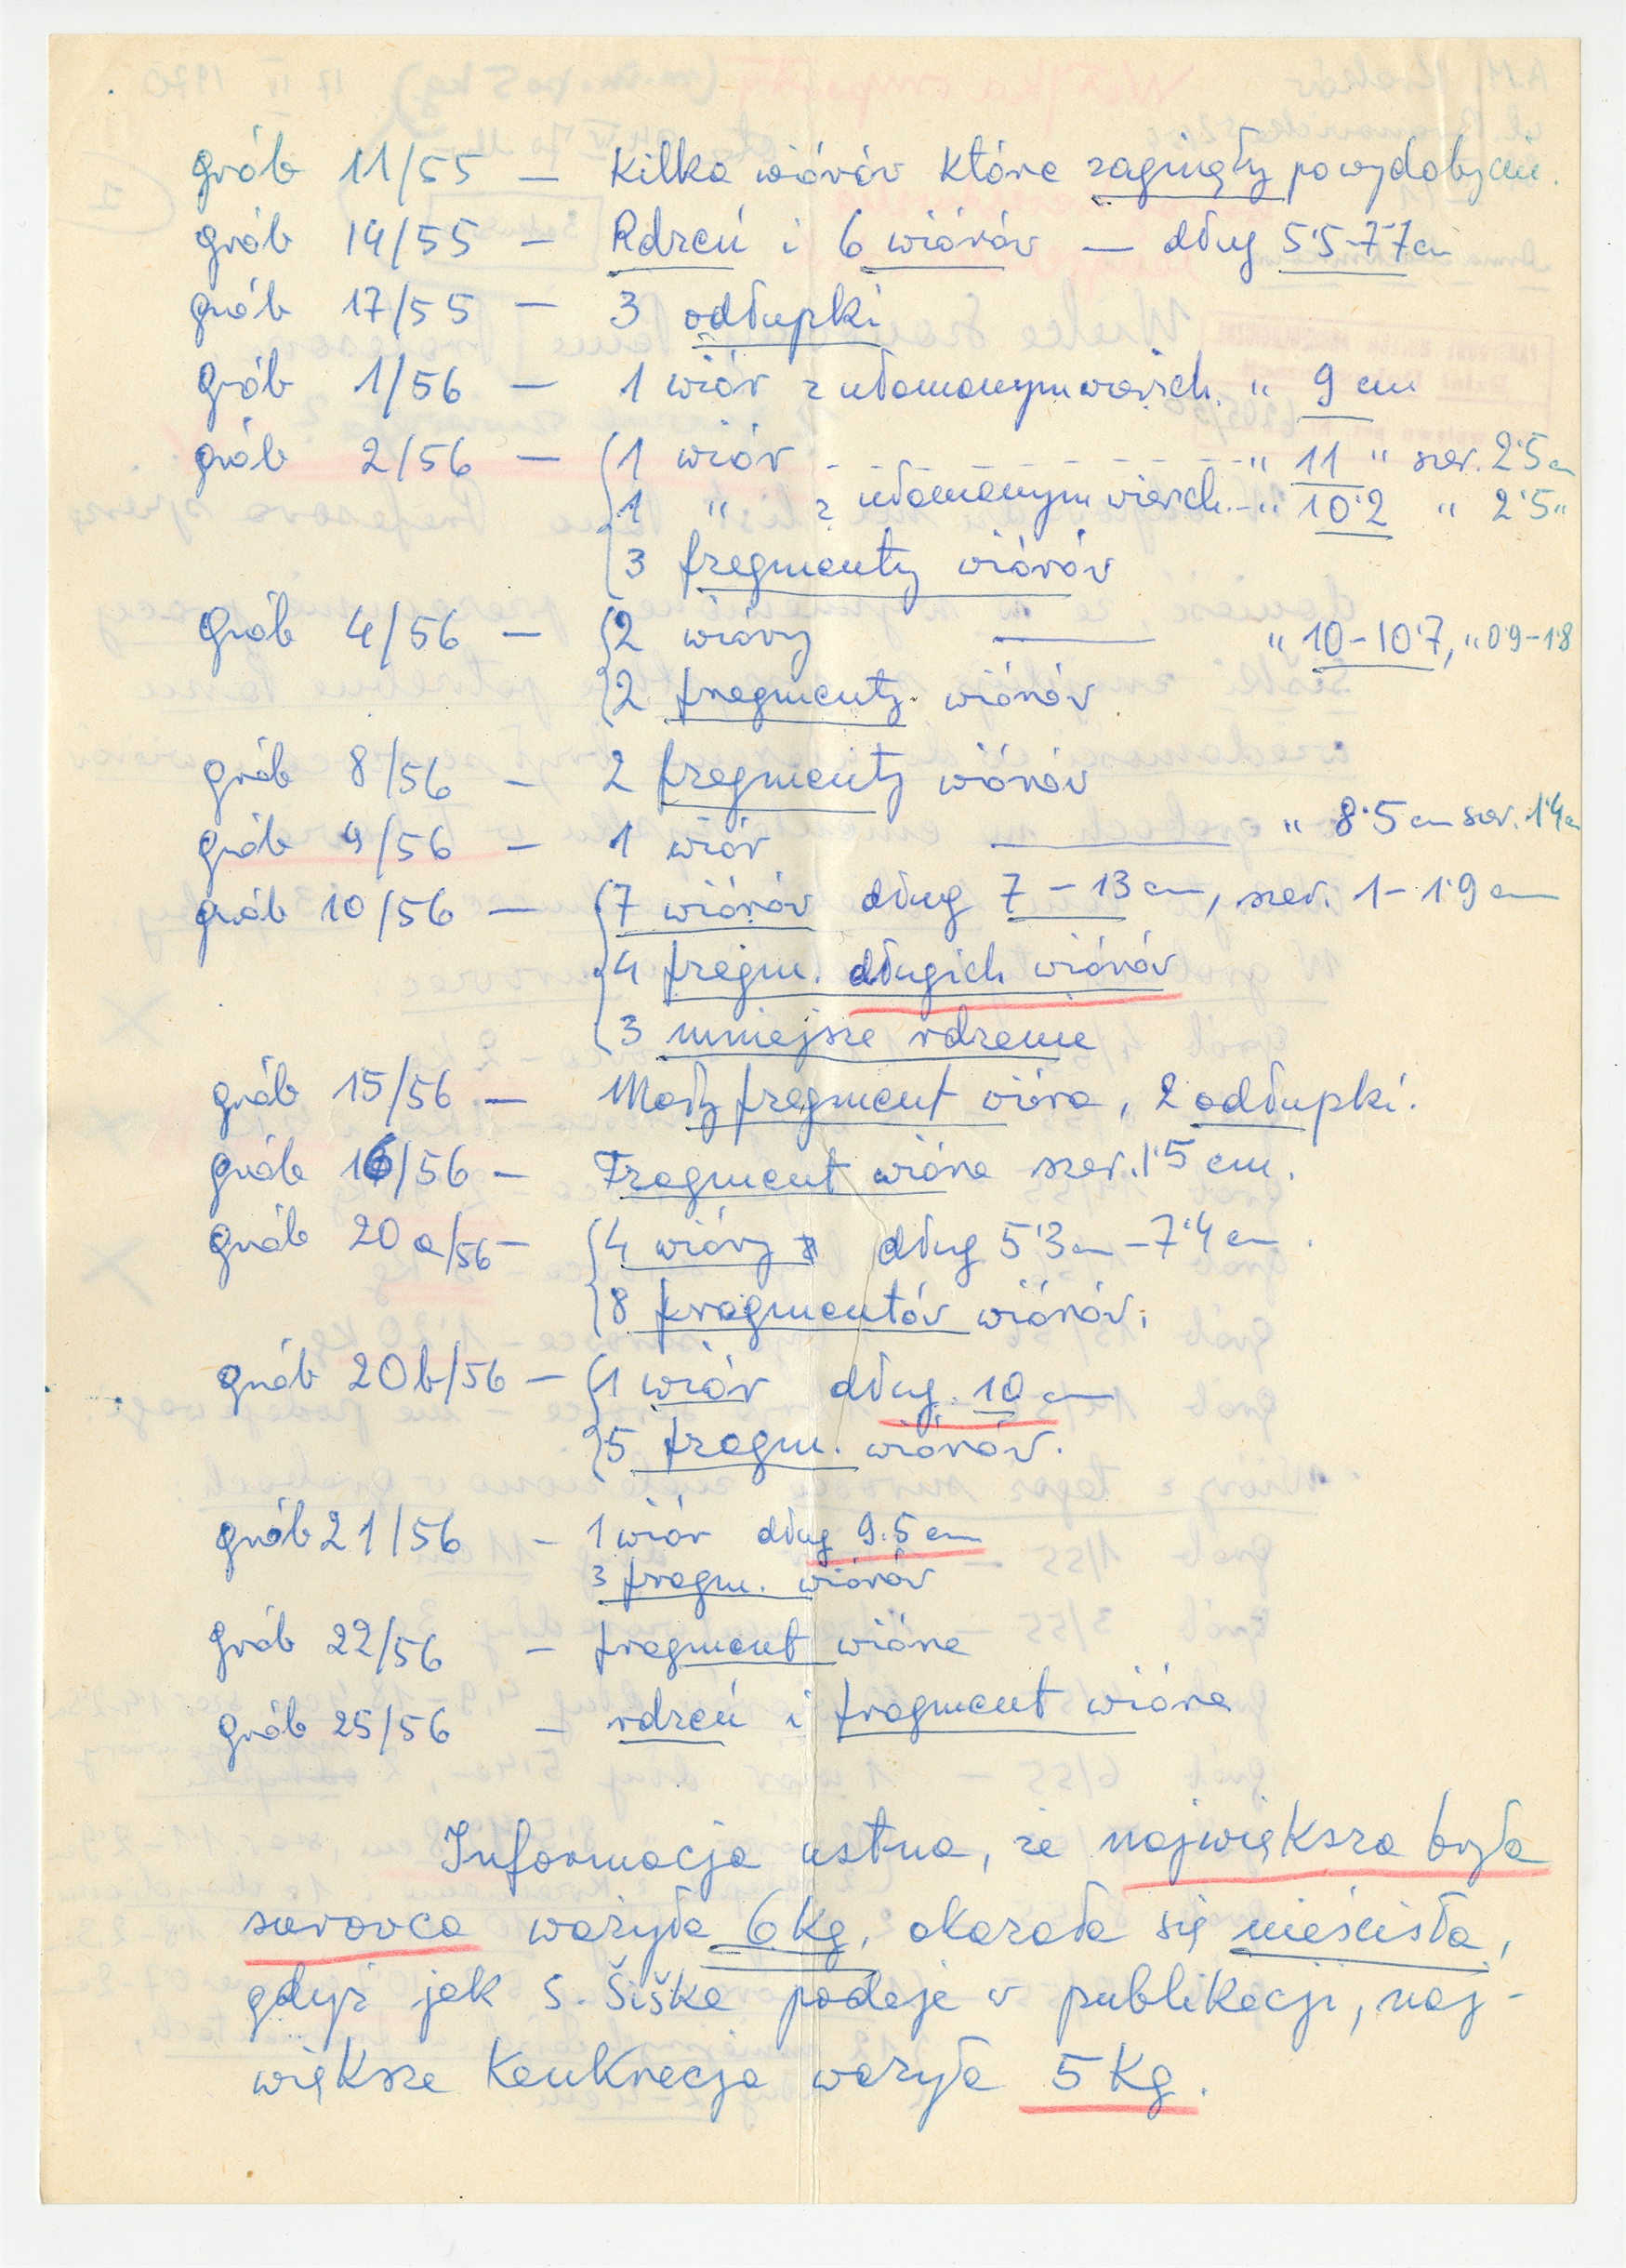 grób 11/55 — Kilka wiórów które zaginęły po wydobyciu.
grób 14/55 — Rdzeń i 6 wiórów — dług 5'5-7'7 cm
grób 17/55 — 3 odłupki
grób 1/56 — 1 wiór z ułamanym wiersch. " 9 cm
grób 2/56 — 1 wiór - - - - - - - " 11 " szer. 2'5 cm
1 " z ułamanym wiersch. - " 10'2 " 2'5 "
3 fragmenty wiórów
grób 4/56 — 2 wióry — " 10-10'7, " 0'9-1'8
2 fragmenty wiórów
grób 8/56 — 2 fragmenty wiórów
grób 9/56 — 1 wiór — " 8'5 cm szer. 1'4 cm
grób 10/56 — 7 wiórów dług 7-13 cm, szer. 1-1'9 cm
4 fragm. długich wiórów
3 mniejsze rdzenie
grób 15/56 — Mały fragment wióra, 2 odłupki.
grób 16/56 — Fragment wióra szer. 1'5 cm.
grób 20a/56 — 4 wióry dług 5'3 cm - 7'4 cm.
8 fragmentów wiórów.
grób 20b/56 — 1 wiór dług. 10 cm
5 fragm. wiórów.
grób 21/56 — 1 wiór dług 9.5 cm
3 fragm. wiórów
grób 22/56 — fragment wióra
grób 25/56 — rdzeń i fragment wióra
Informacja ustna, że największa bryła
surowca ważyła 6 Kg, okazała się nieścisła,
gdyż jak S. Šiška podaje w publikacji, naj-
większa Konkrecja ważyła 5 Kg.